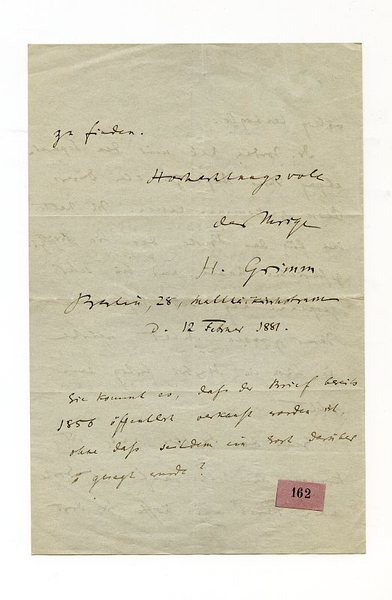 zu finden.
Hochachtungsvoll
der Ihrige
H. Grimm
Berlin, 28, Matthäikirchstrasse
d. 12 Februar 1881.
Wie kommt es, daß der Brief bereits
1856 öffentlich verkauft worden ist,
ohne daß seitdem ein Wort darüber
gesagt wurde?
162